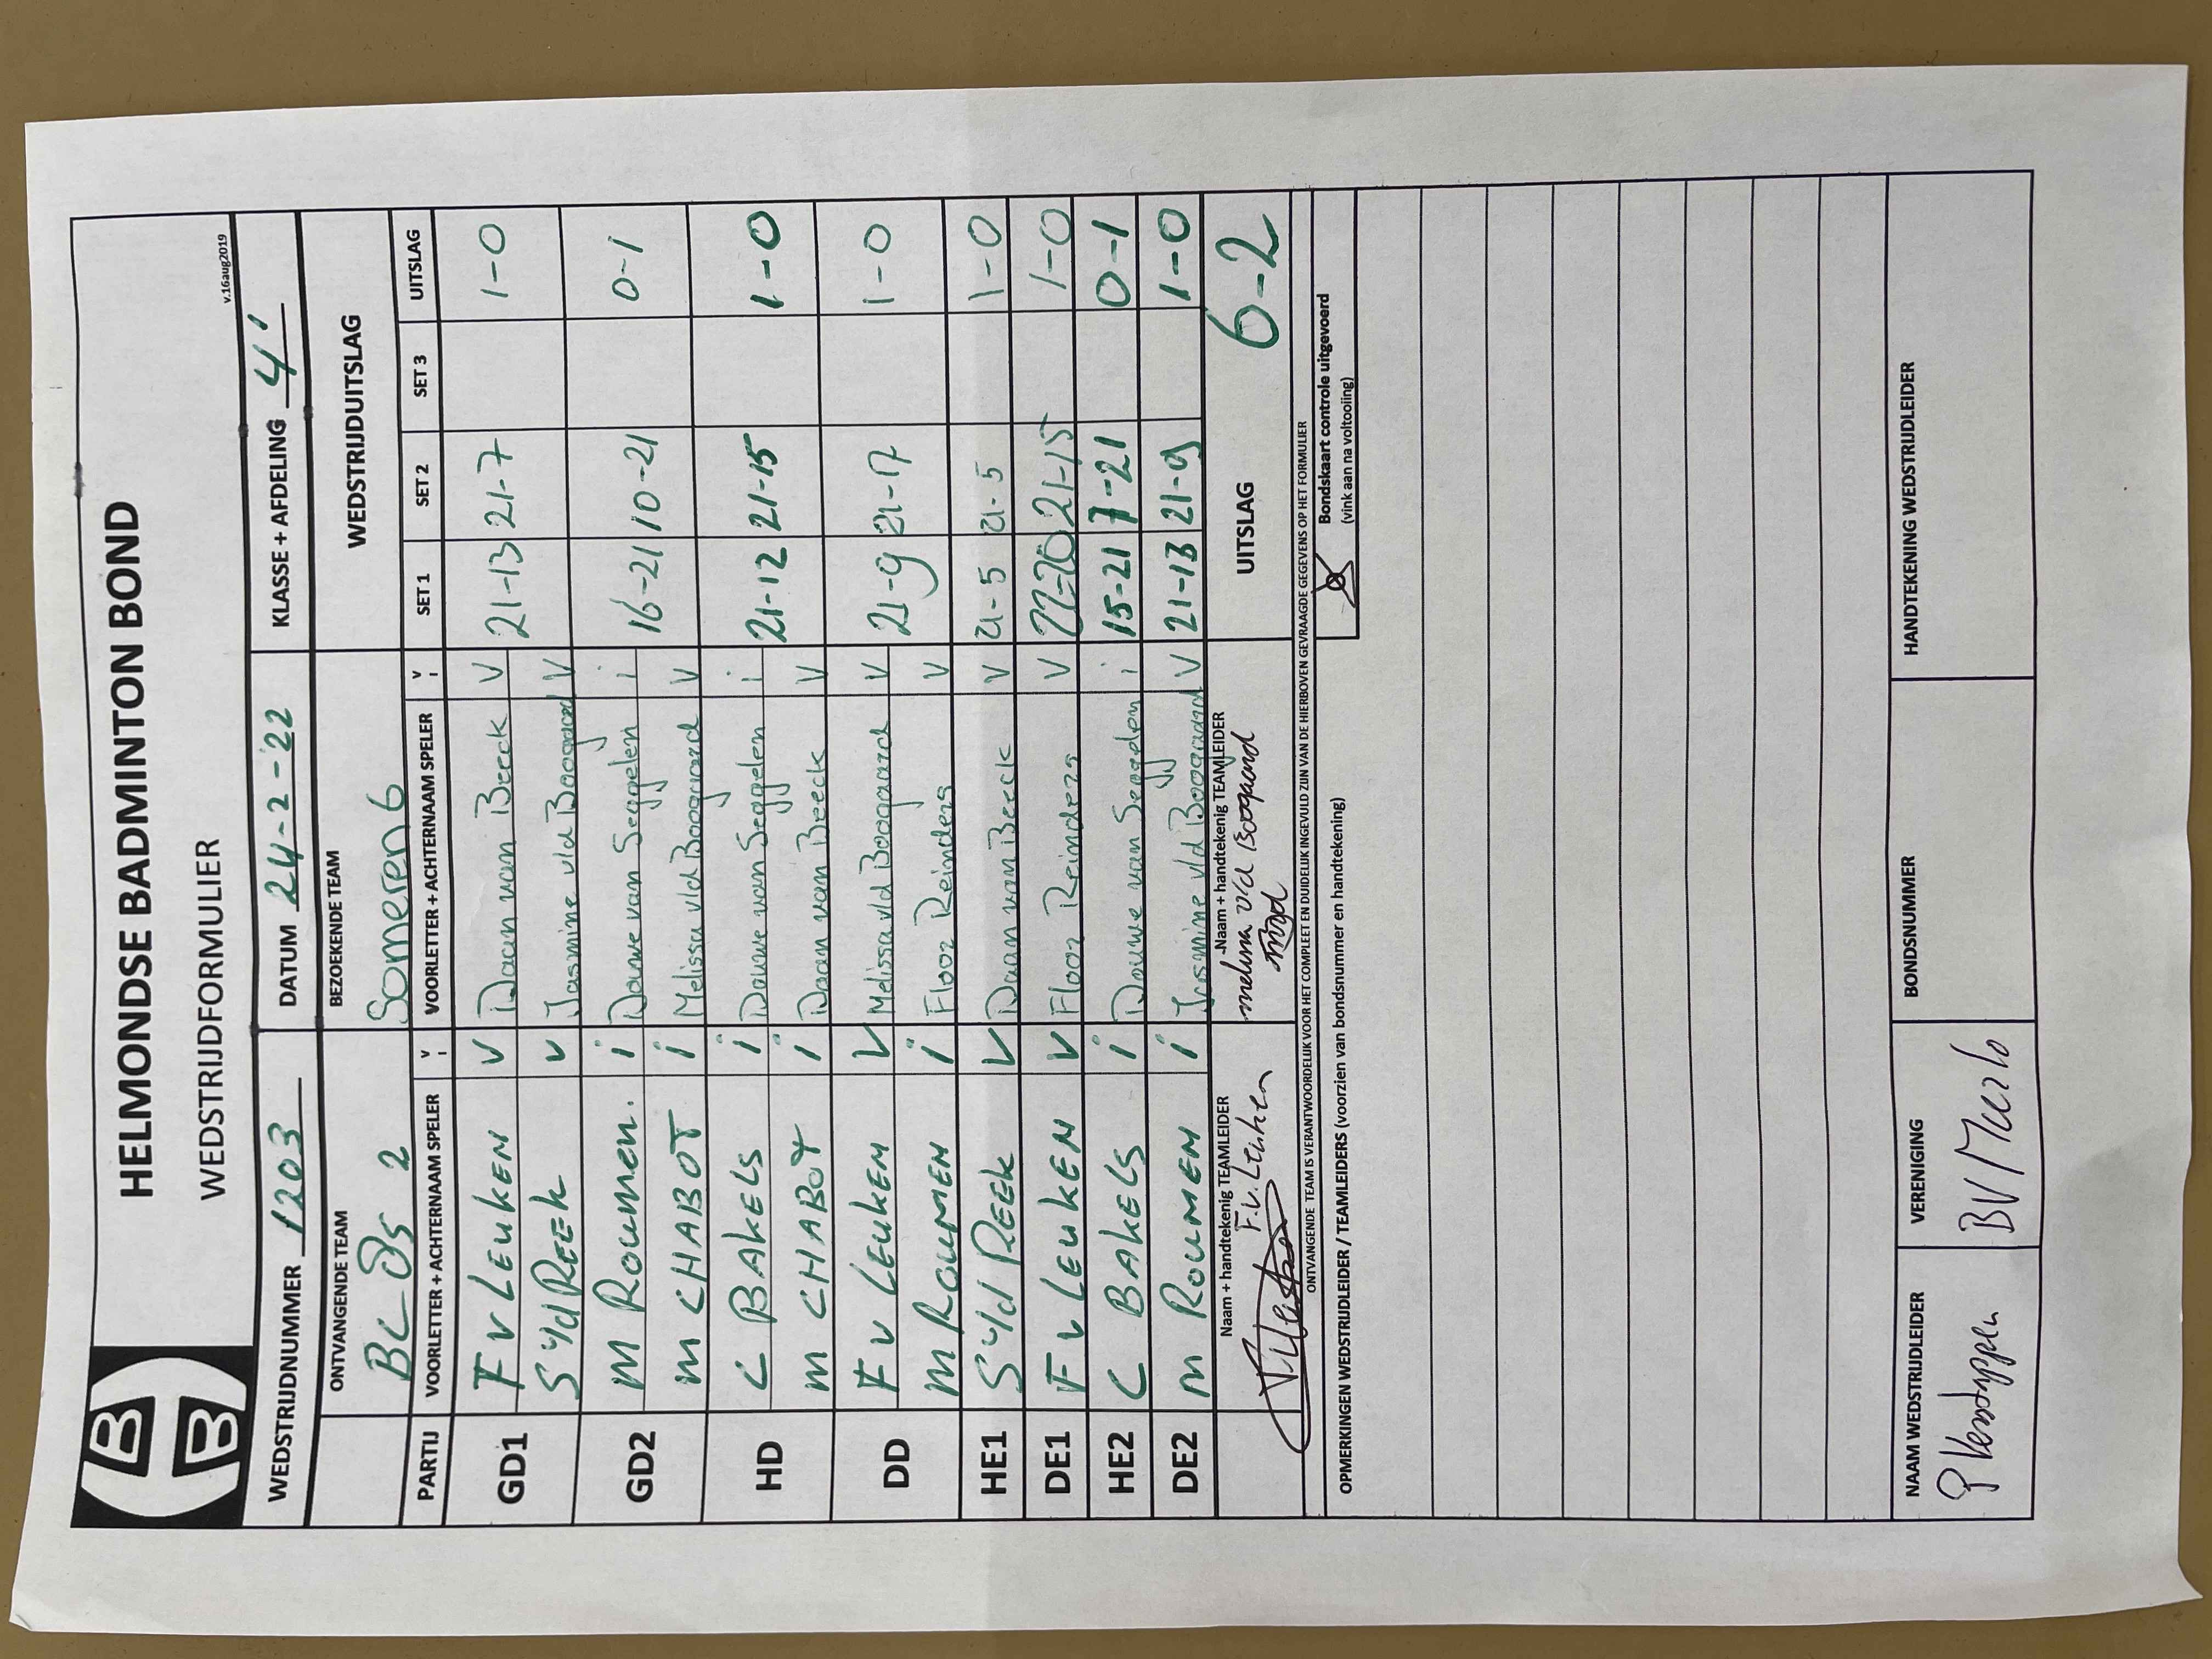 HELMONDSE BADMINTON BOND
WEDSTRIJDFORMULIER
v.16aug2019
WEDSTRIJDNUMMER 1203 DATUM 24-2-22 KLASSE + AFDELING 4'
ONTVANGENDE TEAM BEZOEKENDE TEAM WEDSTRIJDUITSLAG
BC Os 2 Someren 6
PARTIJ VOORLETTER + ACHTERNAAM SPELER V I VOORLETTER + ACHTERNAAM SPELER V I SET 1 SET 2 SET 3 UITSLAG
GD1 F v LEUKEN V Daan van Beeck V 21-13 21-7 1-0
S v/d REEK V Jasmine v/d Boogaard V
GD2 M Roumen. i Douwe van Seggelen i 16-21 10-21 0-1
M CHABOT i Melissa v/d Boogaard V
HD C BAKELS i Douwe van Seggelen i 21-12 21-15 1-0
M CHABOT i Daan van Beeck V
DD F v LEUKEN V Melissa v/d Boogaard V 21-9 21-17 1-0
M ROUMEN i Floor Reinders V
HE1 S v/d REEK V Daan van Beeck V 21-5 21-5 1-0
DE1 F v LEUKEN V Floor Reinders V 22-20 21-15 1-0
HE2 C BAKELS i Douwe van Seggelen i 15-21 7-21 0-1
DE2 M ROUMEN i Jasmine v/d Boogaard V 21-13 21-9 1-0
Naam + handtekenig TEAMLEIDER Naam + handtekenig TEAMLEIDER UITSLAG 6-2
F.v. Leuken melissa v/d Boogaard
ONTVANGENDE TEAM IS VERANTWOORDELIJK VOOR HET COMPLEET EN DUIDELIJK INGEVULD ZIJN VAN DE HIERBOVEN GEVRAAGDE GEGEVENS OP HET FORMULIER
OPMERKINGEN WEDSTRIJDLEIDER / TEAMLEIDERS (voorzien van bondsnummer en handtekening)
Bondskaart controle uitgevoerd
(vink aan na voltooiing)
NAAM WEDSTRIJDLEIDER VERENIGING BONDSNUMMER HANDTEKENING WEDSTRIJDLEIDER
P Verstappen BV Mierlo